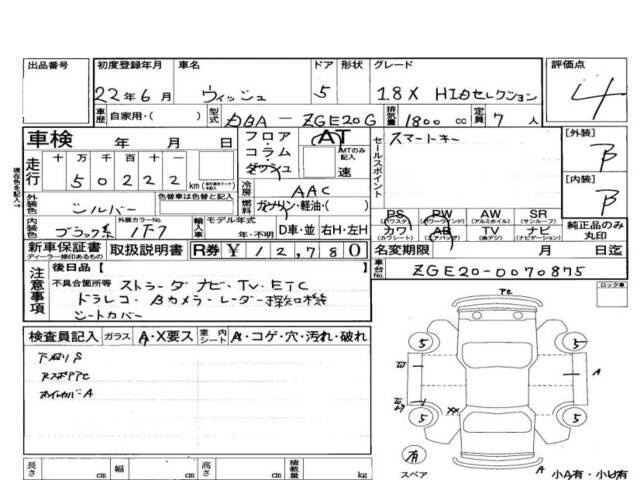 出品番号 初度登録年月 車名 ドア 形状 グレード 評価点
22年6月 ウィッシュ 5 1.8X HIDセレクション 4
車歴 自家用・( ) 型式 DBA-ZGE20G 排気量 1800cc 定員 7人
車検 年 月 日 フロア・コラム・ダッシュ AT MTのみ記入 速
セールスポイント スマートキー
[外装] B
走行 十万千百十 50222 km
[内装] B
現在色を記入→
外装色 シルバー 色替車は色替と記入 冷房 AAC
燃料 ガソリン・軽油・( )
内装色 ブラック系 外装カラーNo. 1F7 輸入車 モデル年式 年・不明 D車・並 右H・左H
PS PW AW SR
(パワステ) (パワーウインド) (アルミホイル) (サンルーフ)
カワ AB TV ナビ
(カワシート) (エアバッグ) (地デジ) (ナビゲーション)
純正品のみ丸印
新車保証書 ディーラー捺印あるもの 取扱説明書 R券 ¥12,780
名変期限 月 日迄
注意事項 後日品【
車台No. ZGE20-0070875
不具合箇所等 ストラーダナビ・TV・ETC
ドラレコ・Bカメラ・レーダー探知機
シートカバー
ロック車
検査員記入 ガラス A・X要ス 室内シート A・コゲ・穴・汚れ・破れ
下廻りS
ホイルカバーA
P2
5 5
A
XX
5 5
有
スペア
A
小A有・小U有
長さ cm 幅 cm 高さ cm 積載量 kg